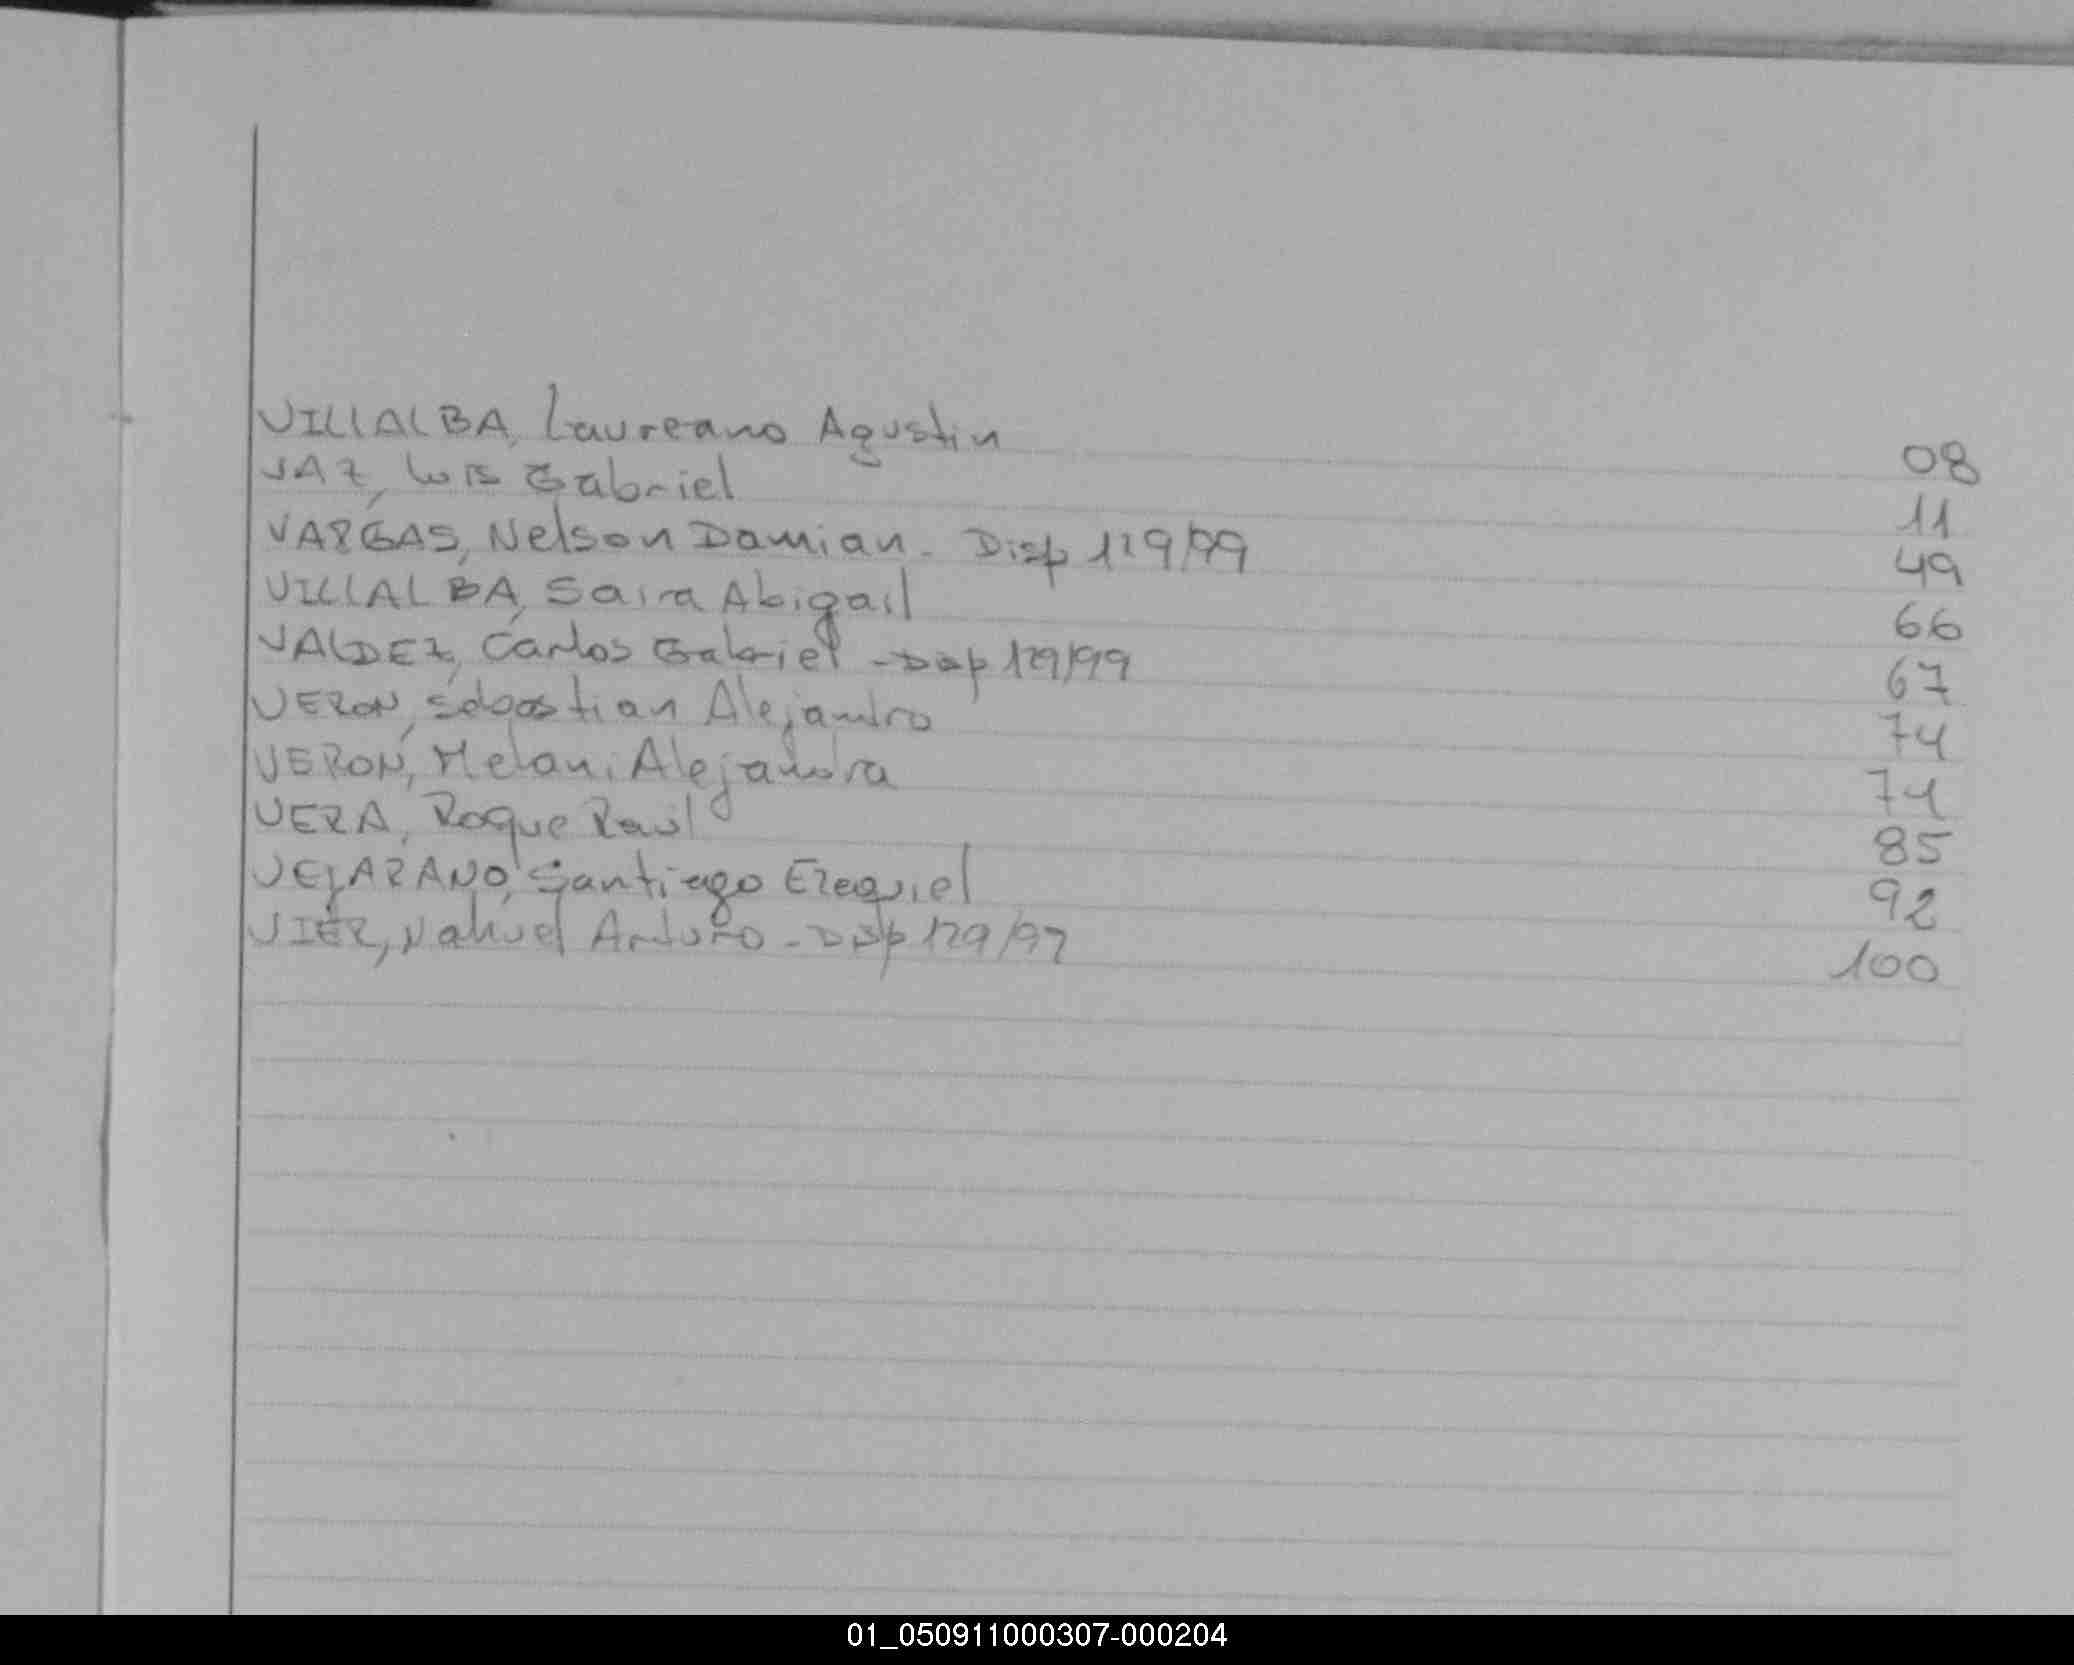 VILLALBA, Laureano Agustin 08
VAZ, Luis Gabriel 11
VARGAS, Nelson Damian - Disp 129/99 49
VILLALBA, Saira Abigail 66
VALDEZ, Carlos Gabriel - Disp 129/99 67
VERON, Sebastian Alejandro 74
VERON, Melani Alejandra 74
VERA, Roque Raul 85
VEJARANO, Santiago Ezequiel 92
VIER, Nahuel Arturo - Disp 129/97 100
01_050911000307-000204